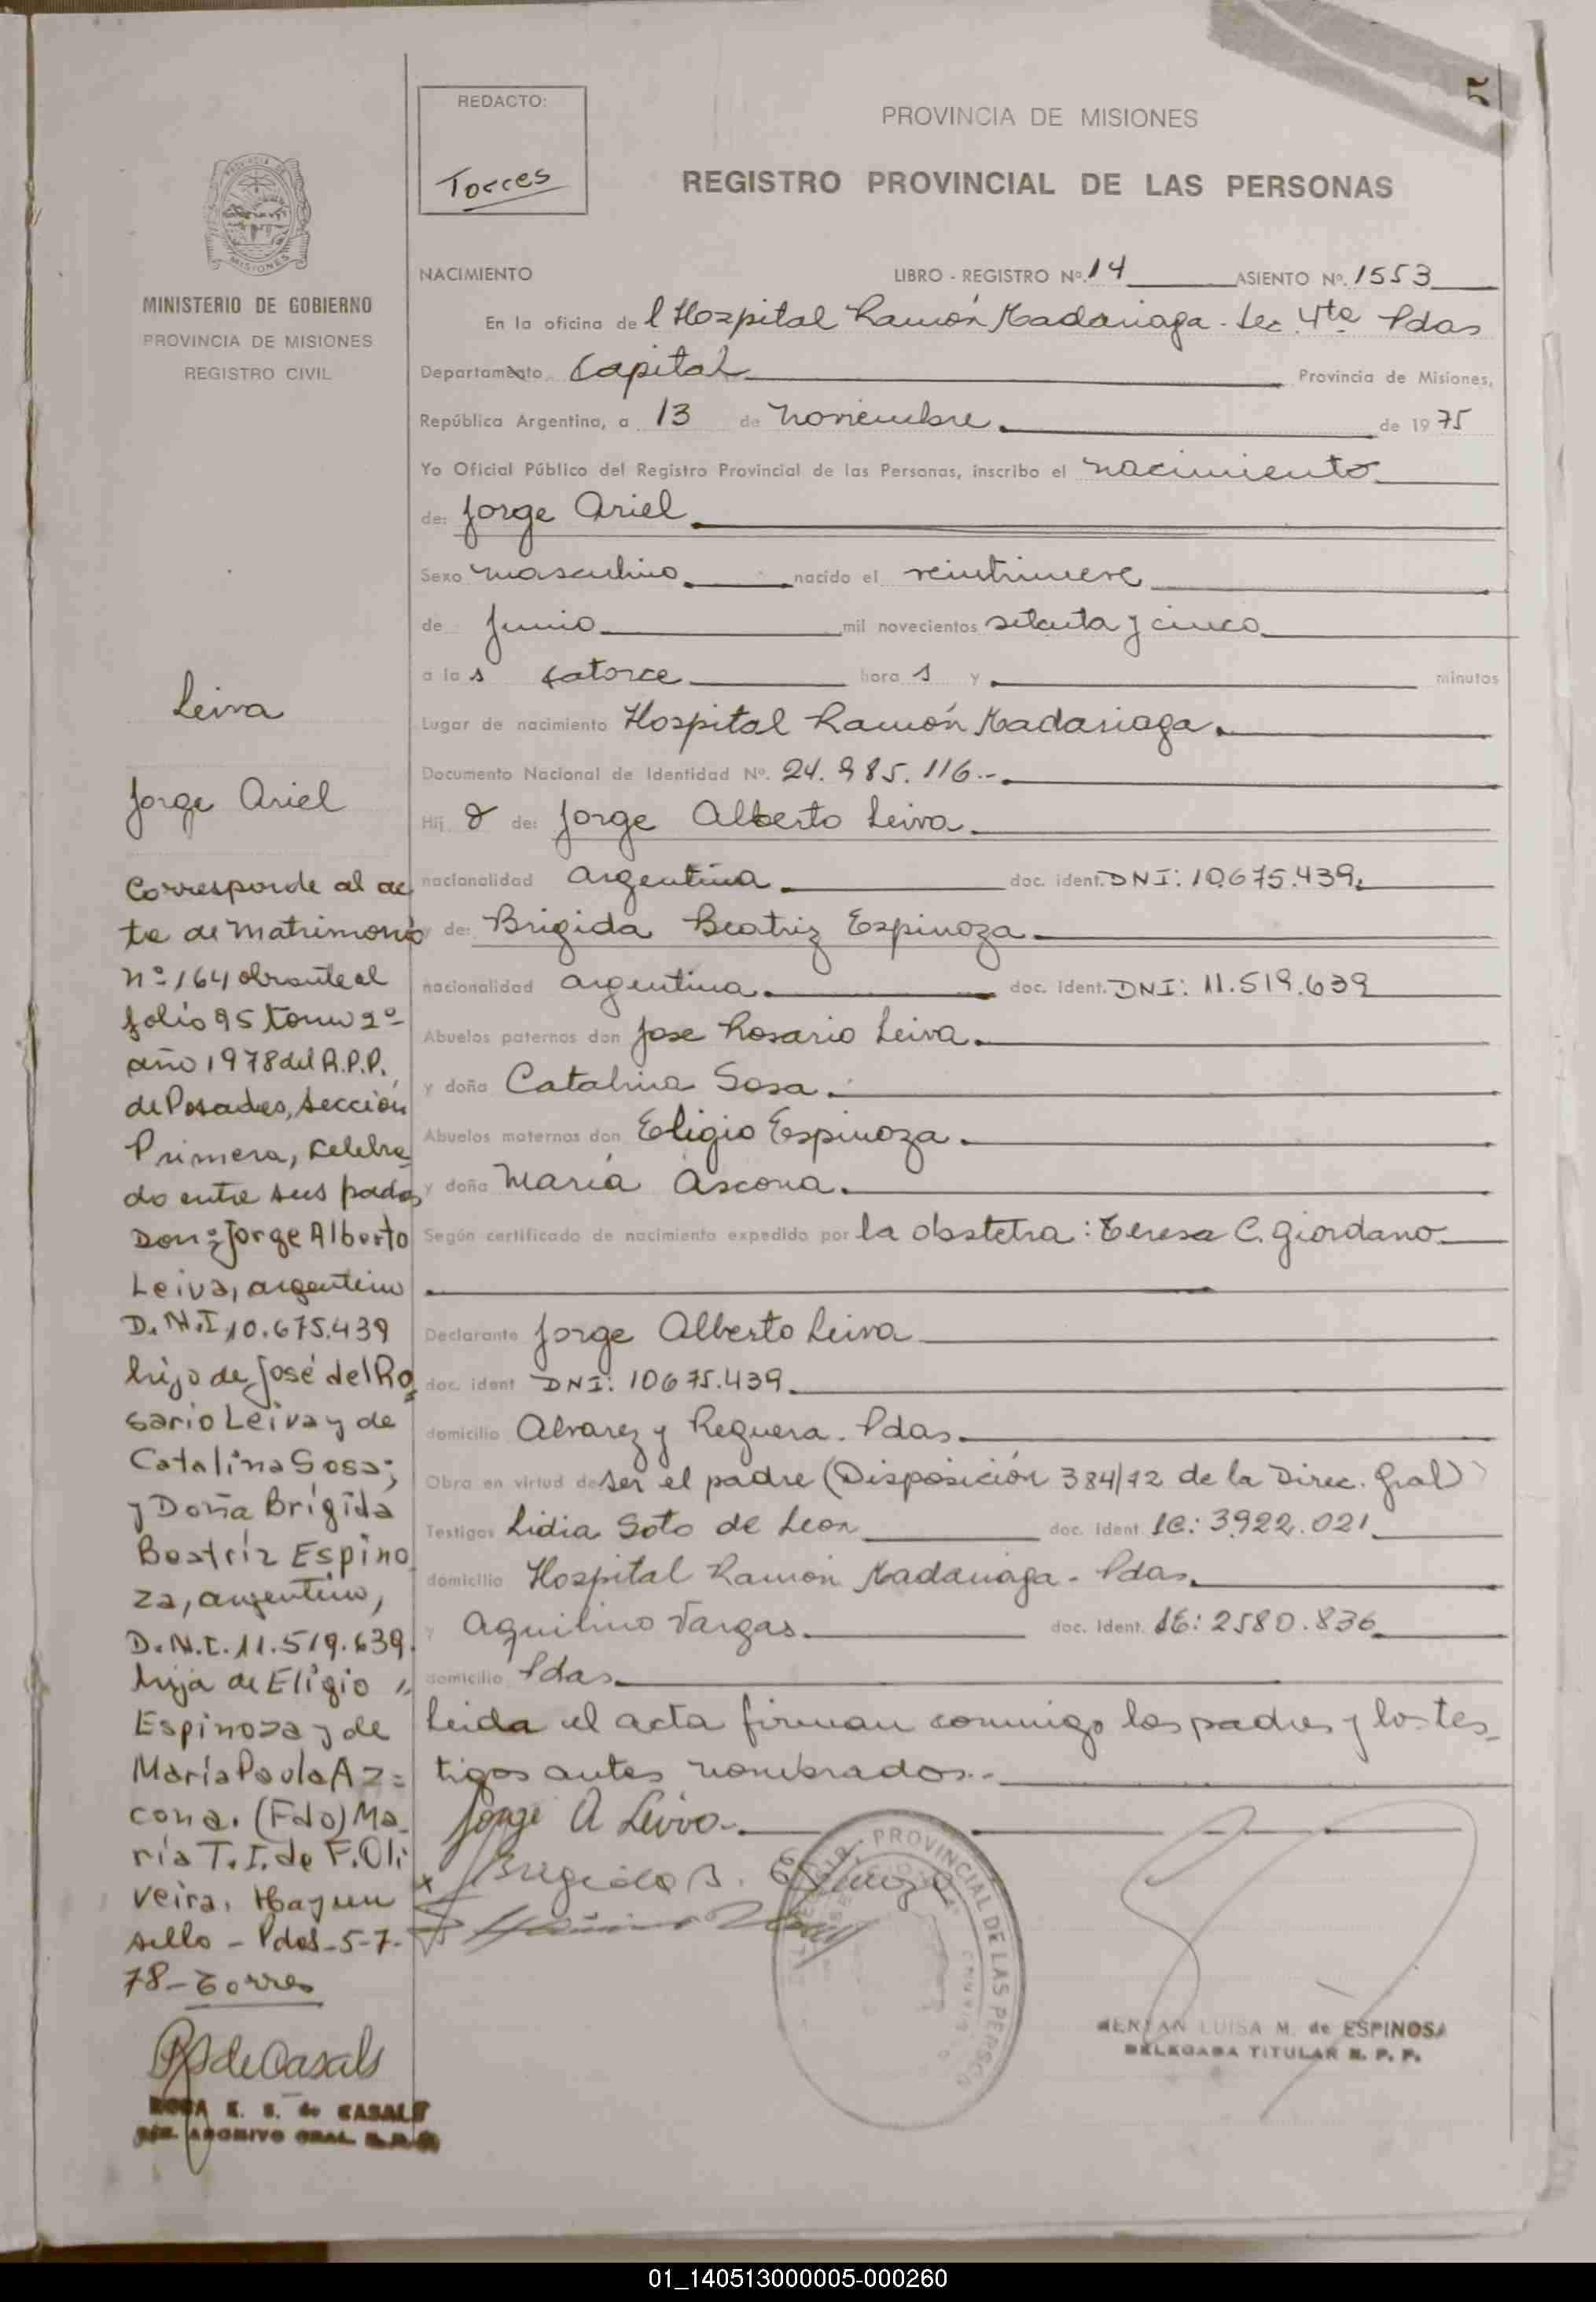 REDACTO:
Torres
PROVINCIA DE MISIONES
REGISTRO PROVINCIAL DE LAS PERSONAS
MISIONES
MINISTERIO DE GOBIERNO
PROVINCIA DE MISIONES
REGISTRO CIVIL
NACIMIENTO LIBRO - REGISTRO Nº. 14 ASIENTO Nº. 1553
En la oficina de l Hospital Ramón Madariaga - Sec 4ta Pdas
Departamento Capital Provincia de Misiones,
República Argentina, a 13 de noviembre de 1975
Yo Oficial Público del Registro Provincial de las Personas, inscribo el nacimiento
de: Jorge Ariel
Sexo masculino nacido el
de Junio mil novecientos setenta y cinco
a las catorce horas y minutos
Lugar de nacimiento Hospital Ramón Madariaga.
Documento Nacional de Identidad Nº. 24.985.116.-
Hijo de: Jorge Alberto Leiva
nacionalidad argentina doc. ident. DNI: 10.675.439
y de: Brigida Beatriz Espinoza
nacionalidad argentina doc. ident. DNI: 11.519.639
Abuelos paternos don Jose Rosario Leiva
y doña Catalina Sosa
Abuelos maternos don Eligio Espinoza
y doña María Ascona
Según certificado de nacimiento expedido por la obstetra: Teresa C. Giordano
Declarante Jorge Alberto Leiva
doc. ident DNI: 10675.439
domicilio Alvarez y Reguera. Pdas
Obra en virtud de ser el padre (Disposición 384/72 de la Direc. Gral)
Testigos Lidia Soto de Leon doc. ident. LC: 3.922.021
domicilio Hospital Ramón Madariaga - Pdas
y Aquilino Vargas doc. ident. 2580.836
domicilio Pdas
Leida el acta firman conmigo los padres y los tes-
tigos antes nombrados.-
Jorge A Leiva
Brigida B. Espinoza
PROVINCIAL DE LAS PERSO
LUISA M. de ESPINOSA
DELEGADA TITULAR R. P. P.
Leiva
Jorge Ariel
Corresponde al ac
ta de Matrimonio
nº 164 obrante al
folio 95 tomo 2º
año 1978 del R.P.P.
de Posadas, Sección
Primera, celebra
do entre sus padres
Don: Jorge Alberto
Leiva, argentino
D.N.I 10.675.439
hijo de José del Ro
sario Leiva y de
Catalina Sosa;
y Doña Brígida
Beatríz Espino
za, argentina,
D.N.I. 11.519.639.
hija de Eligio
Espinoza y de
María Paula Az=
cona. (Fdo) Ma
ría T. I. de F. Oli
veira. Hay un
sello - Pdas - 5-7-
78 - Torres
de Casals
ROSA de CASALS
ARCHIVO GRAL
01_140513000005-000260